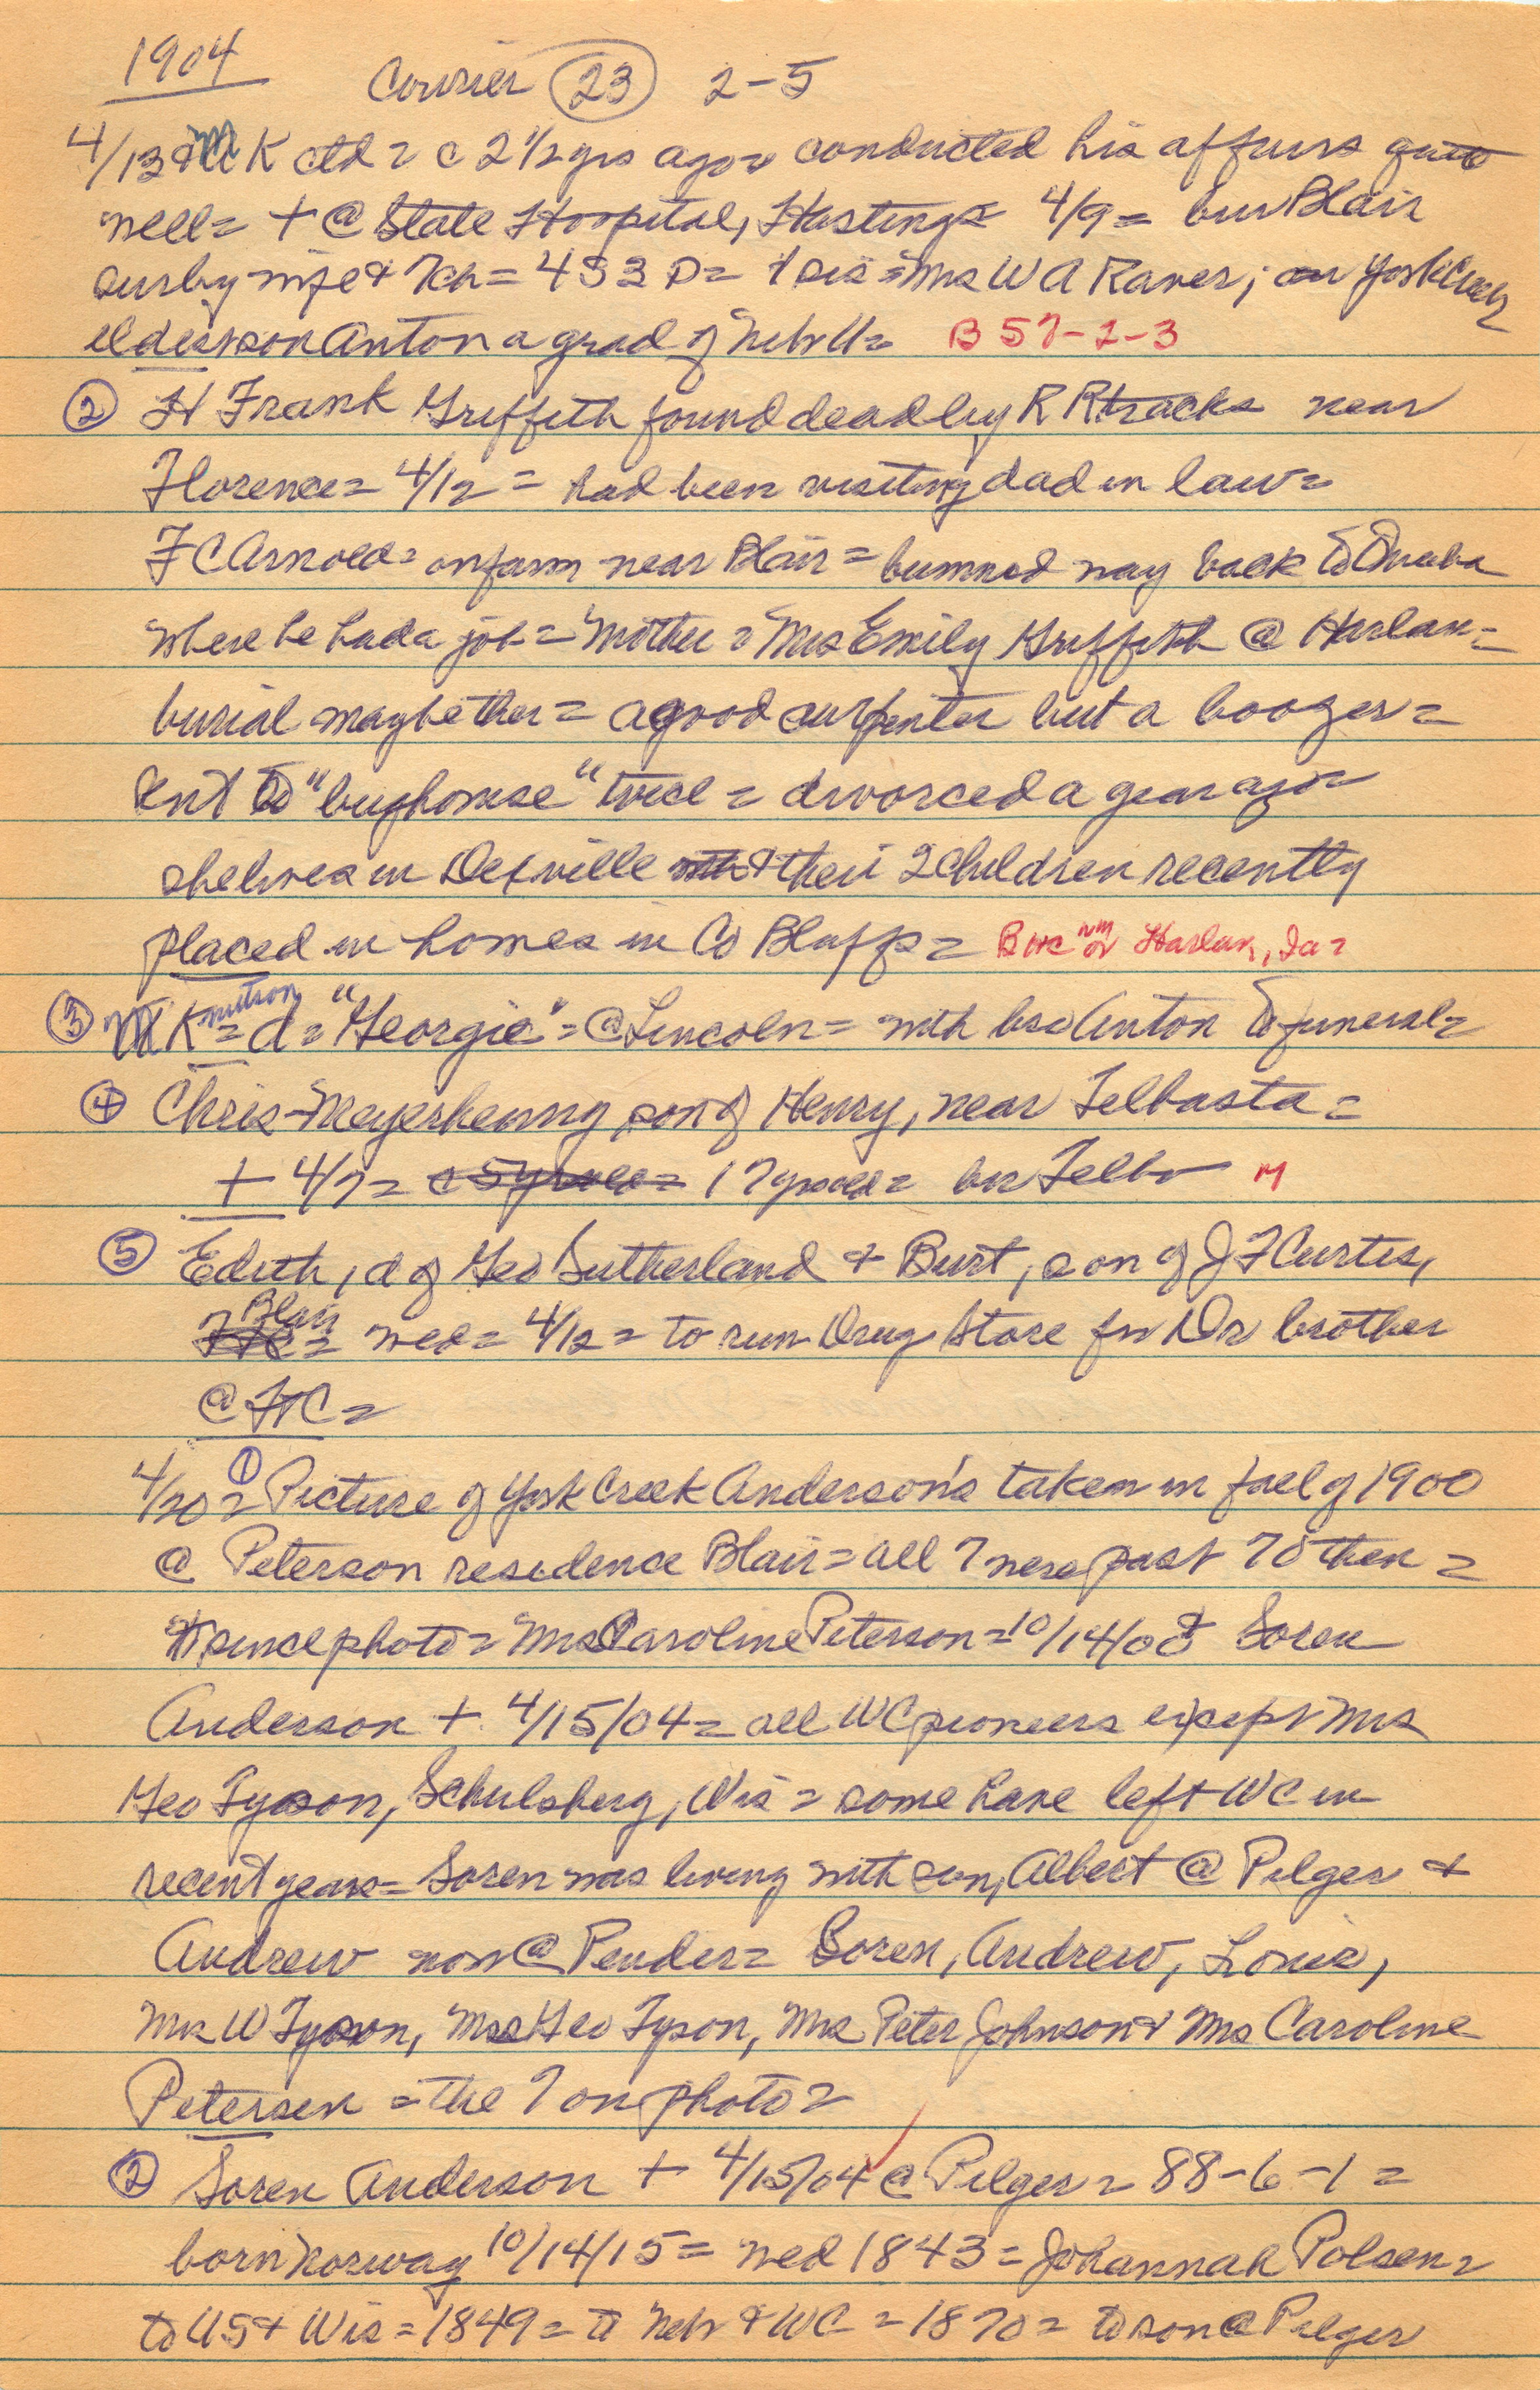 1904
Courier (23) 2-5
4/13 M K ctd = c 2 1/2 yrs ago = conducted his affairs quite
well = + @ State Hospital, Hastings = 4/9 = bur Blair
sur by wife & 7 ch = 4 S 3 D = 1 sis = Mrs W A Raver; on York Creek
eldest son Anton a grad of Neb U = B 57-2-3
(2) H Frank Griffith found dead by R R tracks near
Florence = 4/12 = had been visiting dad in law =
F C Arnold = on farm near Blair = bummed way back to Omaha
where he had a job = Mother = Mrs Emily Griffith @ Harlan =
burial maybe ther = a good carpenter but a boozer =
sent to "bughouse" twice = divorced a year ago =
she lives in Desville & their 2 children recently
placed in homes in Co Bluffs = B nm or Harlan, Ia =
(3) M Knutson = d = "Georgie" = @ Lincoln = with bro Anton to funeral =
(4) Chris Meyerhenny son of Henry, near Telbasta =
+ 4/7 = c 5 yrs old = 17 yrs old = bur Telb M
(5) Edith, d of Geo Sutherland & Burt, son of J F Curtis,
Blair = wed = 4/12 = to run Drug Store for Dr brother
@ Ft C =
4/20 = (1) Picture of York Creek Anderson's taken in fall of 1900
@ Peterson residence Blair = all 7 were past 70 then =
+ since photo = Mrs Caroline Peterson = 10/14/00 & Soren
Anderson + 4/15/04 = all WC pioneers except Mrs
Geo Tyson, Schulsberg, Wis = some have left WC in
recent years = Soren was living with son, Albert @ Pilger &
Andrew now @ Pender = Soren, Andrew, Louis,
Mrs W Tyson, Mrs Geo Tyson, Mrs Peter Johnson & Mrs Caroline
Petersen = the 7 on photo =
(2) Soren Anderson + 4/15/04 @ Pilger = 88-6-1 =
born Norway 10/14/15 = wed 1843 = Johannah Polsen =
to US & Wis = 1849 = to Neb & WC = 1870 = to son @ Pilger